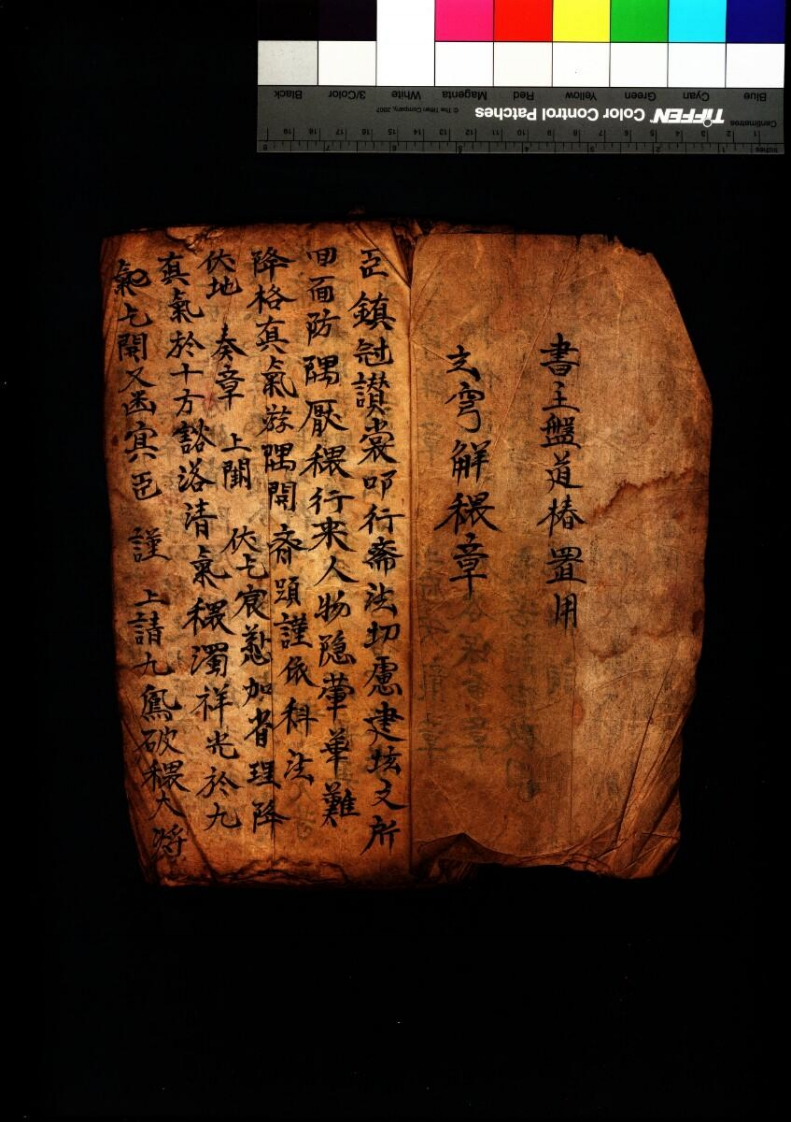 Blue Cyan Green Yellow Red Magenta White 3/Color Black
TIFFEN Color Control Patches © The Tiffen Company, 2007
Centimetres
Inches
書主盤道椿置用
玄穹解穢章
臣 鎮冠讃裳叩行斋法切慮建垓文所
回面防隅厭穢行来人物隐葷華難
降格真氣游隅開斎題謹依科法
伏地 奏章 上聞 伏乞宸慈加省理降
真氣於十方豁落清氣穢濁祥光於九
氣乞開又函冥臣 謹 上請九鳳破穢大將